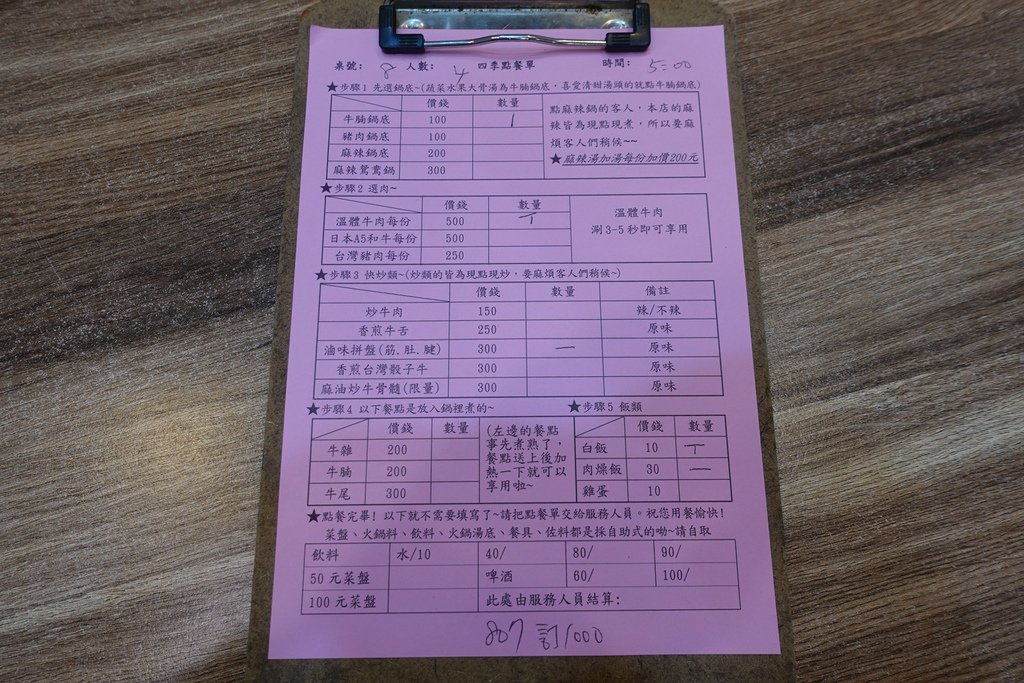 桌號: 8 人數: 4 四季點餐單 時間: 5:00
★步驟1 先選鍋底~(蔬菜水果大骨湯為牛腩鍋底,喜愛清甜湯頭的就點牛腩鍋底)
價錢 數量
牛腩鍋底 100 1
豬肉鍋底 100
麻辣鍋底 200
麻辣鴛鴦鍋 300
點麻辣鍋的客人,本店的麻
辣皆為現點現煮,所以要麻
煩客人們稍候~~
★麻辣湯加湯每份加價200元
★步驟2 選肉~
價錢 數量
溫體牛肉每份 500 T
日本A5和牛每份 500
台灣豬肉每份 250
溫體牛肉
涮3-5秒即可享用
★步驟3 快炒類~(炒類的皆為現點現炒,要麻煩客人們稍候~)
價錢 數量 備註
炒牛肉 150 辣/不辣
香煎牛舌 250 原味
滷味拼盤(筋.肚.腱) 300 一 原味
香煎台灣骰子牛 300 原味
麻油炒牛骨髓(限量) 300 原味
★步驟4 以下餐點是放入鍋裡煮的~
價錢 數量
牛雜 200
牛腩 200
牛尾 300
(左邊的餐點
事先煮熟了,
餐點送上後加
熱一下就可以
享用啦~
★步驟5 飯類
價錢 數量
白飯 10 T
肉燥飯 30 一
雞蛋 10
★點餐完畢!以下就不需要填寫了~請把點餐單交給服務人員。祝您用餐愉快!
菜盤、火鍋料、飲料、火鍋湯底、餐具、佐料都是採自助式的呦~請自取
飲料 水/10 40/ 80/ 90/
50元菜盤 啤酒 60/ 100/
100元菜盤 此處由服務人員結算:
807 訂1000